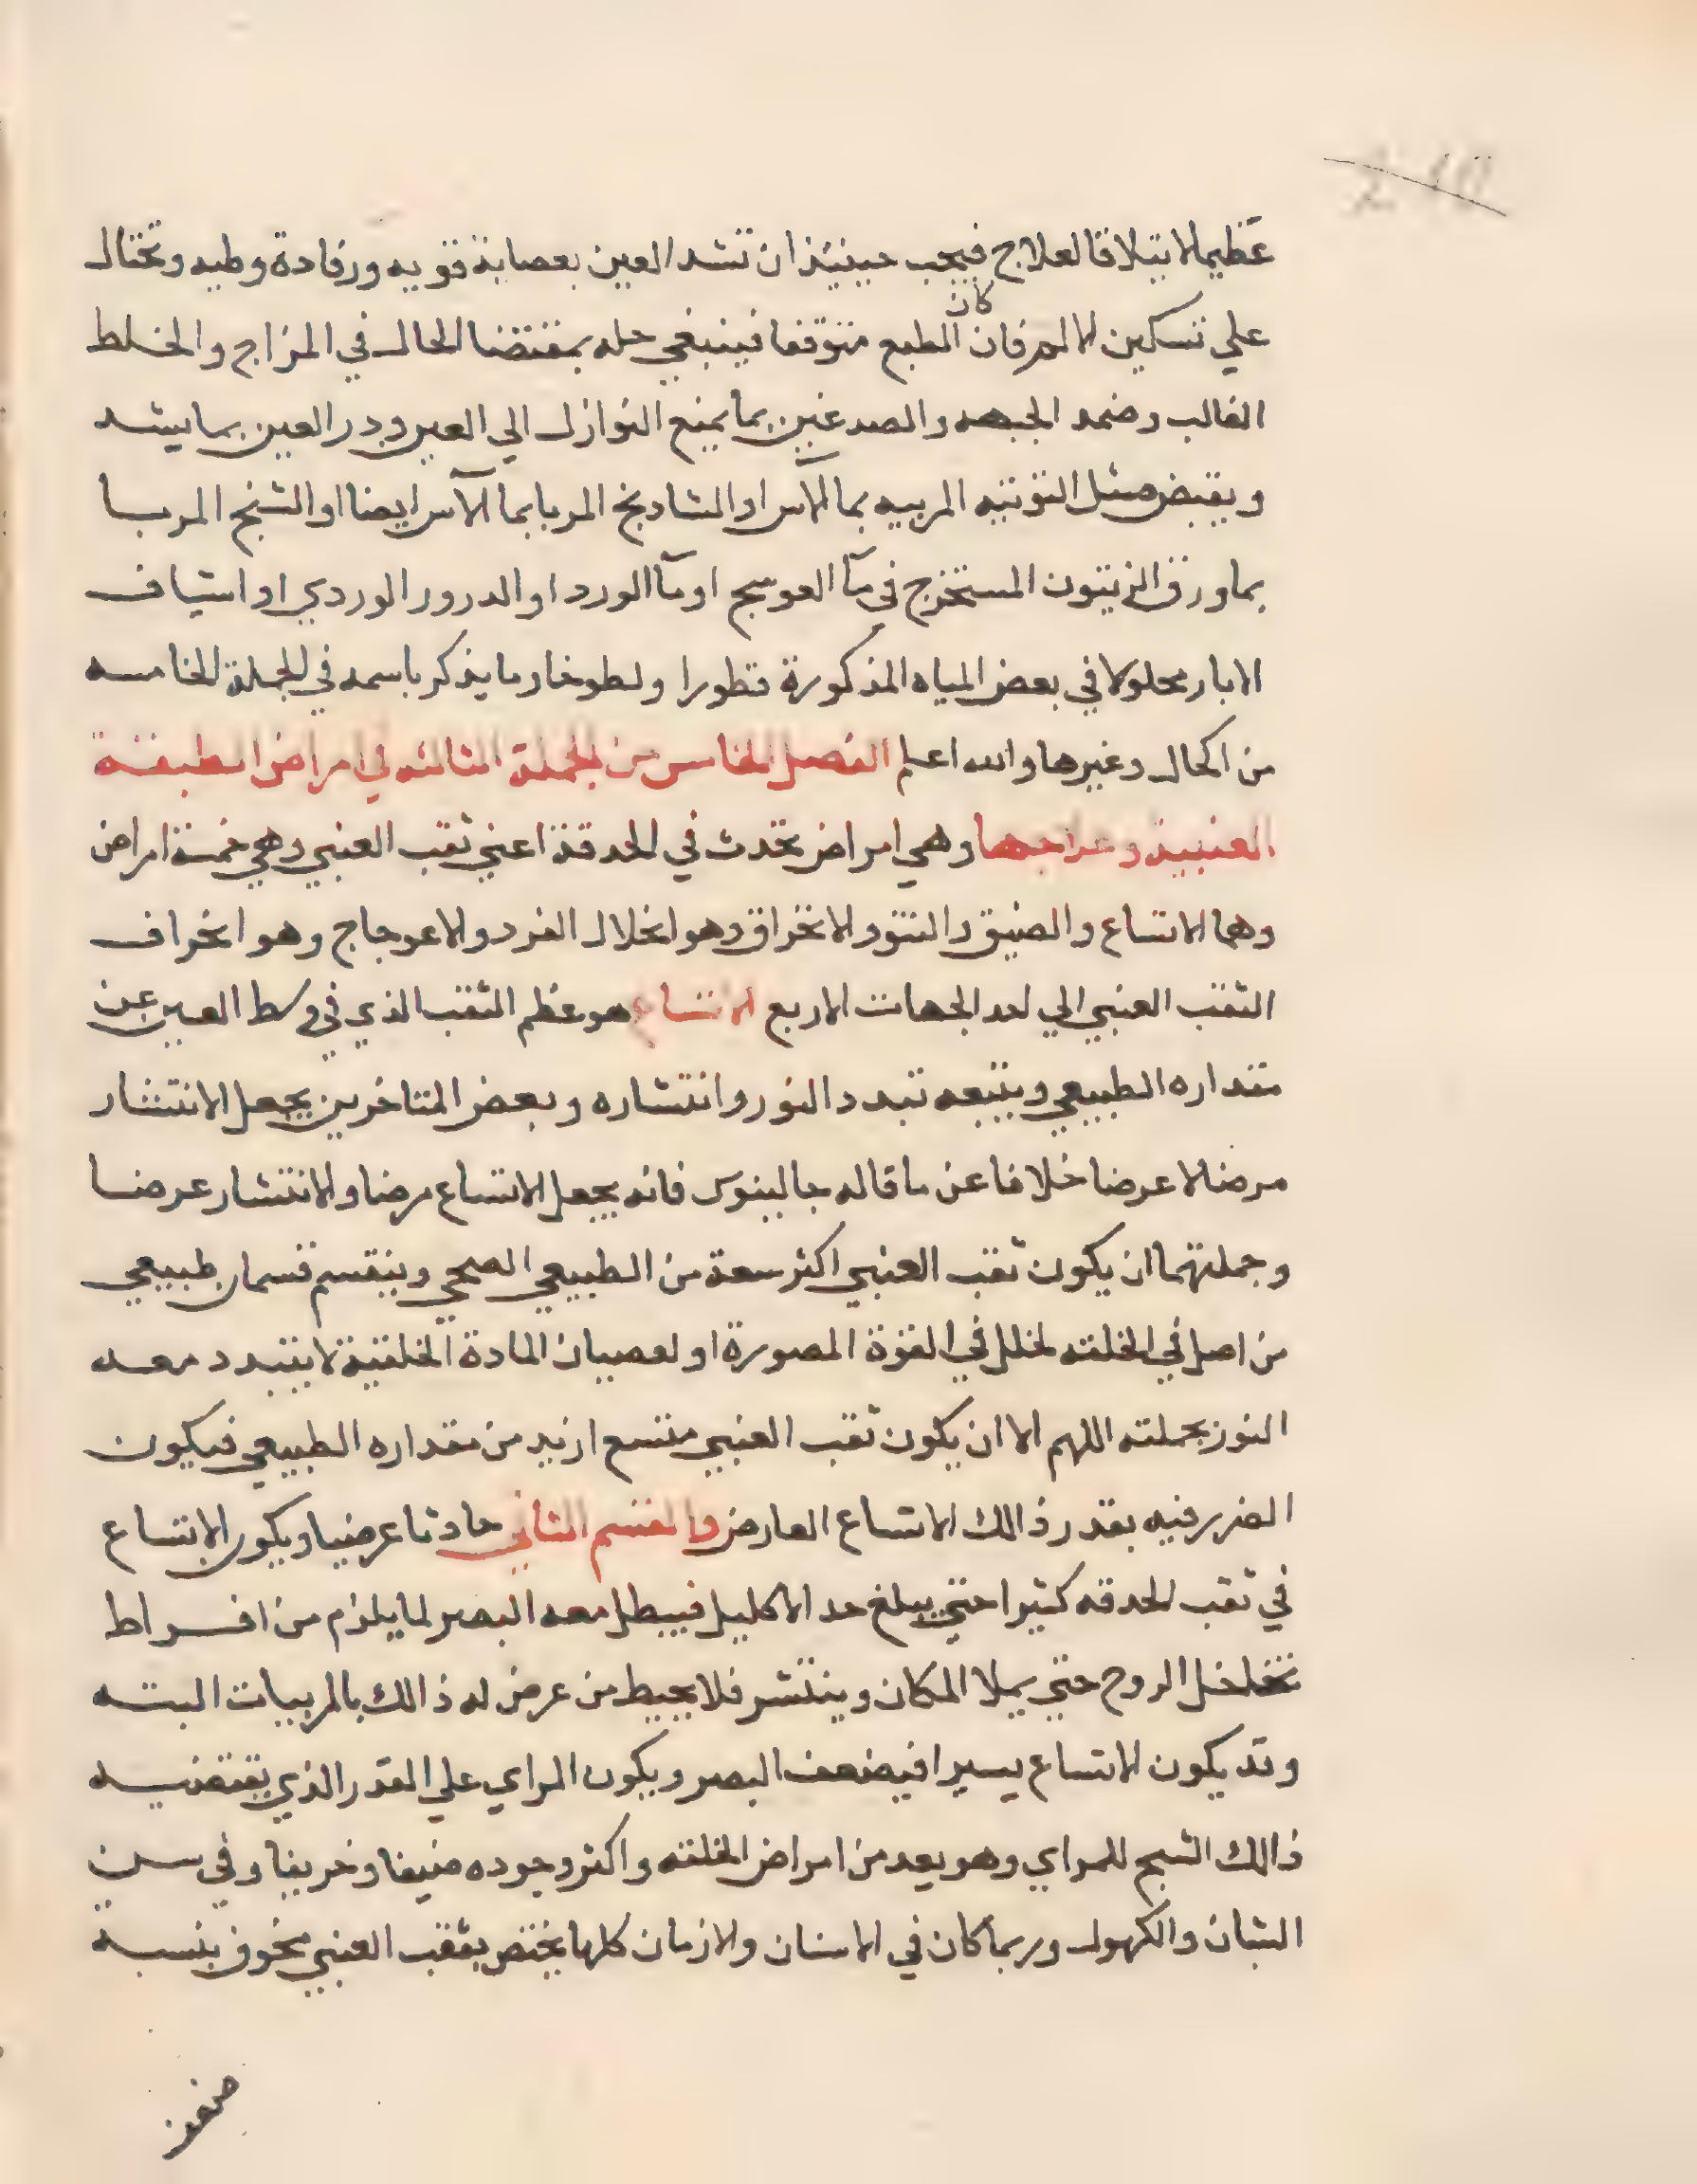 عظيما لا يتلافا لعلاج فيجب حينيئذ ان تشد العين بعصابة قويه ورفادة وطيه وتحتال
علي تسكين الالم فان كان الطبع متوقفا فينبغي حله بمقتضا الحال في المزاج والخلط
الغالب وضمد الجبهه والصدغين بما يمنع النوازل الي العين وذر العين بما يشد
ويقبض مثل التوتيه المربيه بما الآس او الشادنج المربا بما الآس ايضا او الشنج المربا
بما ورق الزيتون المستخرج في مآ العوسج او مآ الورد او الدرور الوردي او اشياف
الابار محلولا في بعض المياه المذكورة قطورا ولطوخا وما يذكر باسمه في الجملة الخامسه
من اكحال وغيرها والله اعلم الفصل الخامس من الجملة الثالثه في امراض الطبقة
العنبية وعلاجها وهي امراض تحدث في الحدقة اعني ثقب العنبي وهي خمسة امراض
وهما الاتساع والضيق والنتو والانخراق وهو انحلال الفرد والاعوجاج وهو انحراف
الثقب العنبي الي احد الجهات الاربع الاتساع هو عظم الثقب الذي في وسط العين عن
مقداره الطبيعي ويتبعه تبدد النور وانتشاره وبعض المتاخرين يجعل الانتشار
مرضا لا عرضا خلافا عن ما قاله جالينوس فانه يجعل الاتساع مرضا والانتشار عرضا
وجملتهما ان يكون ثقب العنبي اكثر سعة من الطبيعي الصحي وينقسم قسمان طبيعي
من اصل في الخلقه لخلل في القوة المصورة او لعصيان المادة الخلقية لا يتبدد معه
النور بجملته اللهم الا ان يكون ثقب العنبي متسع ازيد من مقداره الطبيعي فيكون
الضرر فيه بقدر ذالك الاتساع العارض والقسم الثاني حادثا عرضيا ويكون الاتساع
في ثقب الحدقه كثيرا حتي يبلغ حد الاكليل فيبطل معه البصر لما يلزم من افراط
تخلخل الروح حتي يملا المكان وينتشر فلا يحيط من عرض له ذالك بالمربيات البته
وقد يكون الاتساع يسيرا فيضعف البصر ويكون المراي علي القدر الذي يقتضيه
ذالك الشبح للمراي وهو يعد من امراض الخلقه واكثر وجوده صيفا وخريفا وفي سن
الشبان والكهول وربما كان في الاسنان والازمان كلها يختص بثقب العنبي نخوف بنسبة